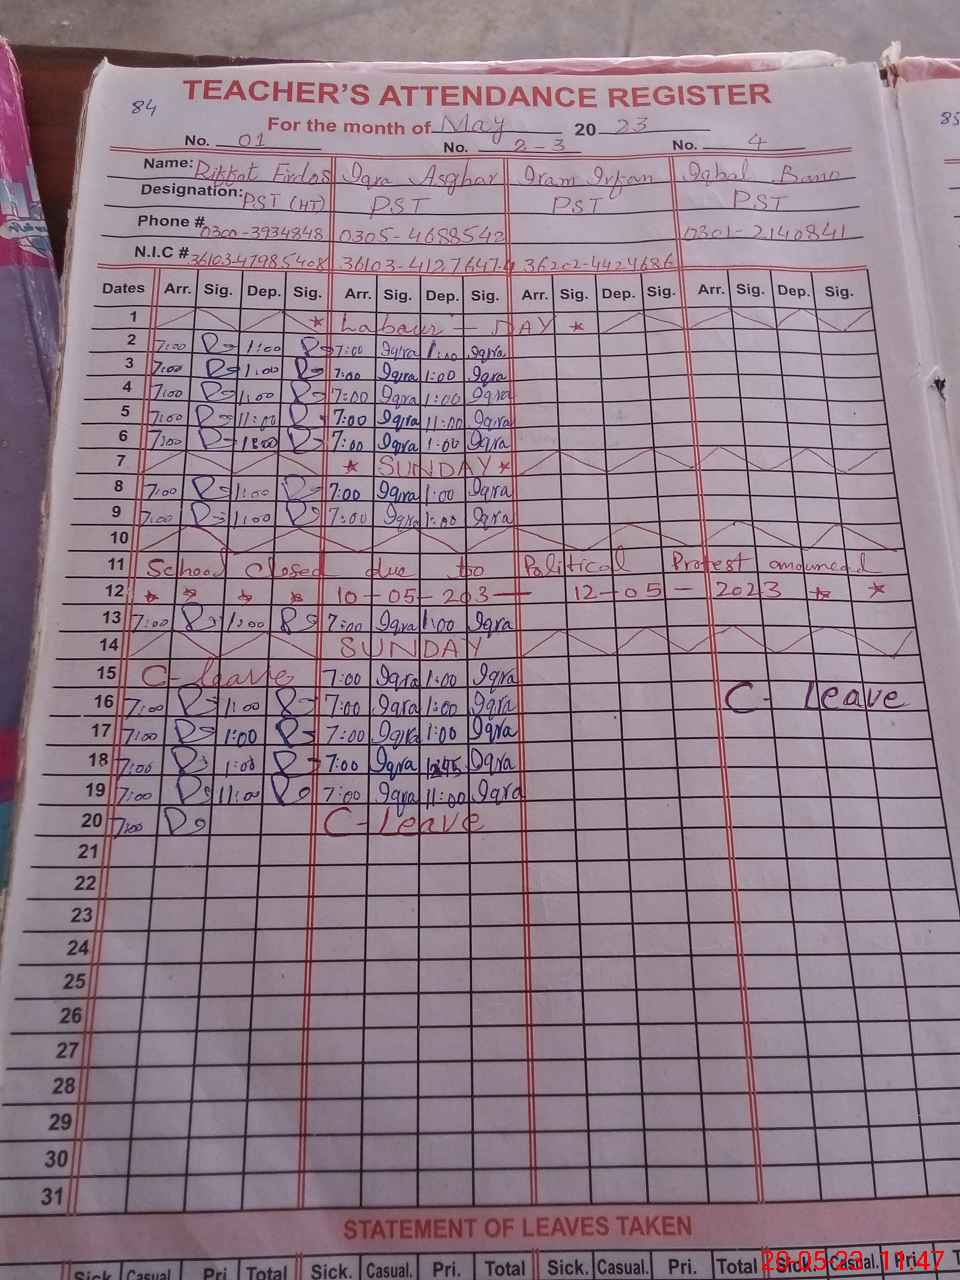 84
TEACHER'S ATTENDANCE REGISTER
85
For the month of May 2023
No. 01 No. 2-3 No. 4
Name: Riffat Firdos Iqra Asghar Iram Irfan Iqbal Bano
Designation: PST (HT) PST PST PST
Phone # 0300-3934848 0305-4688542 0301-2140841
N.I.C # 36103-47985408 36103-4127647-4 36202-4424686
Dates Arr. Sig. Dep. Sig. Arr. Sig. Dep. Sig. Arr. Sig. Dep. Sig. Arr. Sig. Dep. Sig.
1 * Labour - DAY *
2 7:00 1:00 7:00 Iqra 1:00 Iqra
3 7:00 1:00 7:00 Iqra 1:00 Iqra
4 7:00 1:00 7:00 Iqra 1:00 Iqra
5 7:00 11:00 7:00 Iqra 11:00 Iqra
6 7:00 1:00 7:00 Iqra 1:00 Iqra
7 * SUNDAY *
8 7:00 1:00 7:00 Iqra 1:00 Iqra
9 7:00 1:00 7:00 Iqra 1:00 Iqra
10
11 School closed due to Political Protest announced
12 * * * * 10-05-203 — 12-05-2023 * *
13 7:00 1:00 7:00 Iqra 1:00 Iqra
14 SUNDAY
15 C-leave 7:00 Iqra 1:00 Iqra
16 7:00 1:00 7:00 Iqra 1:00 Iqra C- Leave
17 7:00 1:00 7:00 Iqra 1:00 Iqra
18 7:00 1:00 7:00 Iqra Iqra
19 7:00 11:00 7:00 Iqra 11:00 Iqra
20 7:00 C-Leave
21
22
23
24
25
26
27
28
29
30
31
STATEMENT OF LEAVES TAKEN
Sick. Casual. Pri. Total Sick. Casual. Pri. Total Sick. Casual. Pri. Total Sick. Casual. Pri.
29.05.23 11:47